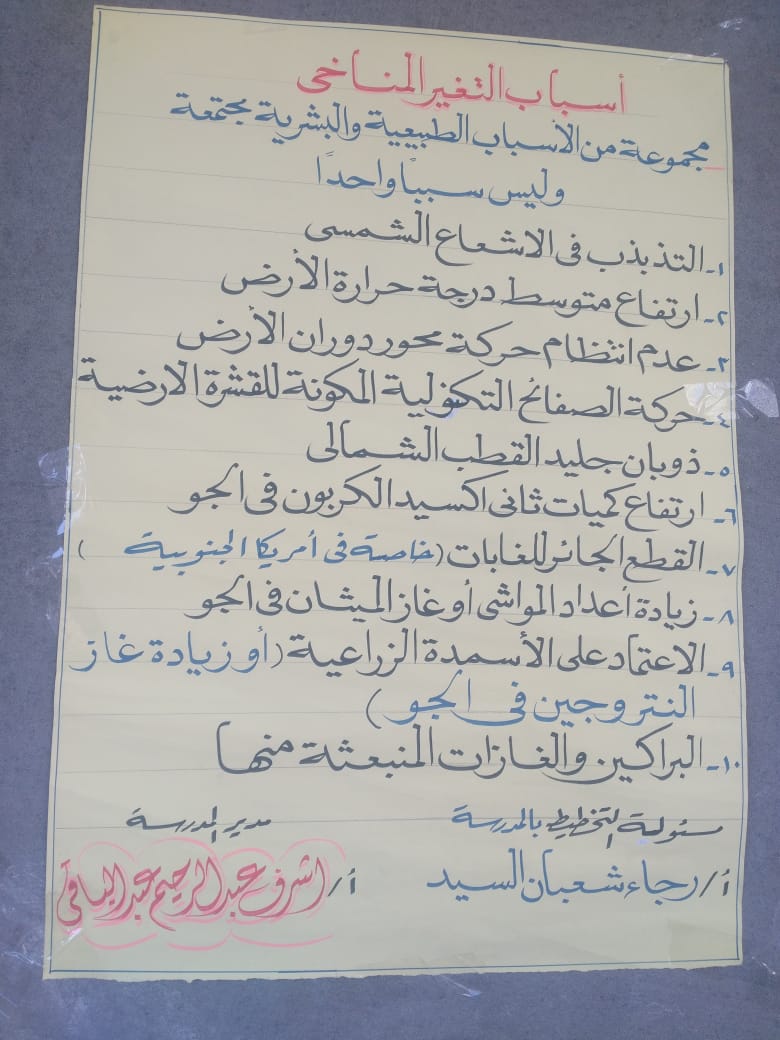 أسباب التغير المناخى
مجموعة من الأسباب الطبيعية والبشرية مجتمعة
وليس سببًا واحدًا
١- التذبذب فى الاشعاع الشمسى
٢- ارتفاع متوسط درجة حرارة الأرض
٣- عدم انتظام حركة محور دوران الأرض
٤- حركة الصفائح التكنولية المكونة للقشرة الارضية
٥- ذوبان جليد القطب الشمالى
٦- ارتفاع كميات ثانى اكسيد الكربون فى الجو
٧- القطع الجائر للغابات (خاصة فى أمريكا الجنوبية )
٨- زيادة أعداد المواشى أو غاز الميثان فى الجو
٩- الاعتماد على الأسمدة الزراعية (أو زيادة غاز
النتروجين فى الجو )
١٠- البراكين والغازات المنبعثة منها
مسئولة التخطيط بالمدرسة
أ/ رجاء شعبان السيد
مدير المدرسة
أ/ اشرف عبد الرحيم عبد الباقى